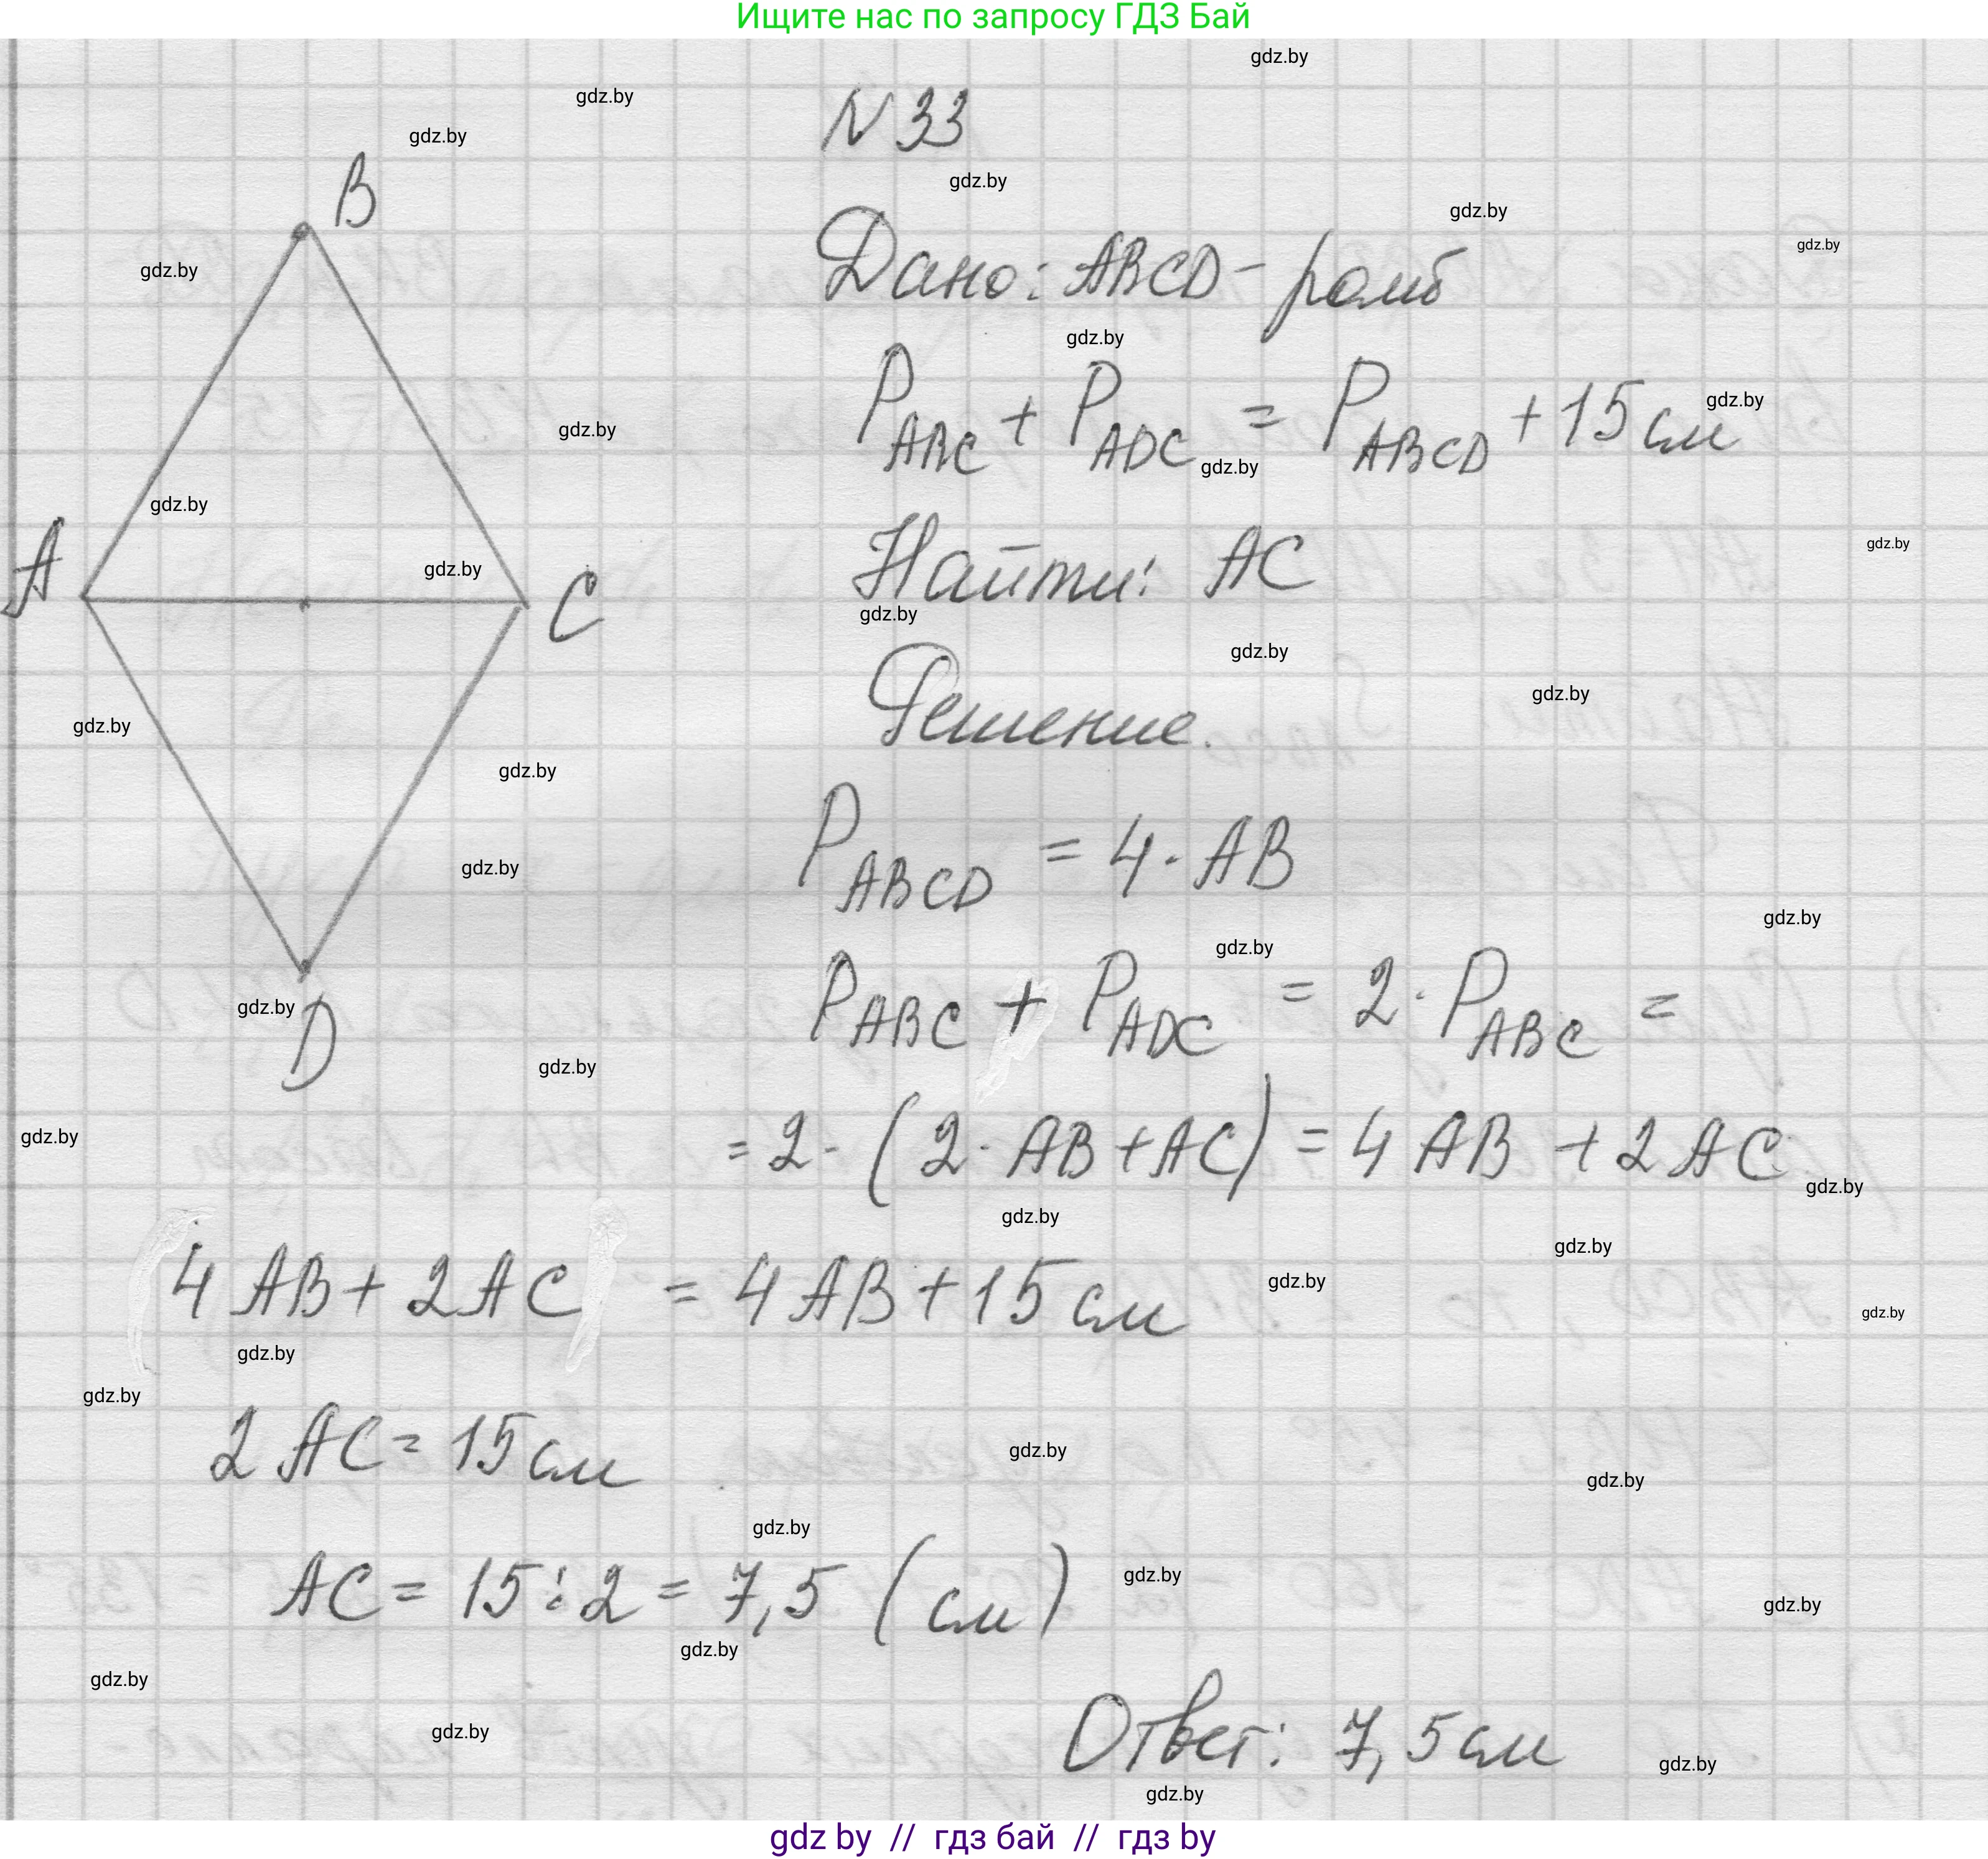 Ищите нас по запросу ГДЗ Бай
N 33
B
Дано: ABCD - ромб
P ABC + P ADC = P ABCD + 15 см
A
C
Найти: AC
Решение.
P ABCD = 4 · AB
P ABC + P ADC = 2 · P ABC =
D
= 2 · (2 · AB + AC) = 4 AB + 2 AC
4 AB + 2 AC = 4 AB + 15 см
2 AC = 15 см
AC = 15 : 2 = 7,5 (см)
Ответ: 7,5 см
gdz by // гдз бай // гдз by
gdz.by